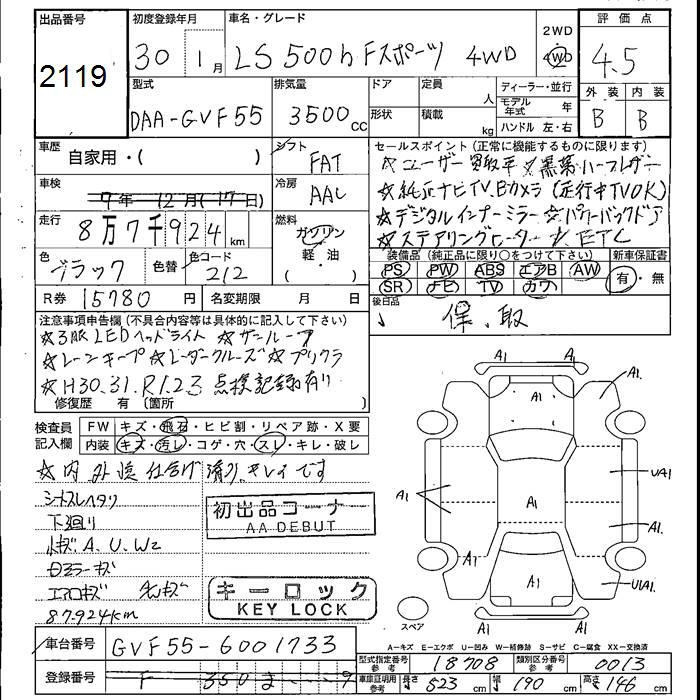 出品番号 初度登録年月 車名・グレード 評価点
2119 30 1月 LS 500h Fスポーツ 4WD 2WD 4WD 4.5
型式 排気量 ドア 定員 人 ディーラー・並行 外装 内装
DAA-GVF55 3500cc 形状 積載 kg モデル年式 年 ハンドル 左・右 B B
車歴 自家用・( ) シフト FAT セールスポイント (正常に機能するものに限ります)
☆ユーザー買取車 ☆黒革ハーフレザー
車検 7年 12月(17日) 冷房 AAC ☆純正ナビTV.Bカメラ(走行中TVOK)
走行 8万7千924km 燃料 ガソリン 軽・油 ☆デジタルインナーミラー ☆パワーバックドア
☆ステアリングヒーター ☆ETC
色 ブラック 色替 色コード 212 装備品 (純正品に限り○をつけて下さい) 新車保証書
PS PW ABS エアB AW 有・無
SR ナビ TV カワ
R券 15780円 名変期限 月 日 後日品 保、取
注意事項申告欄 (不具合内容等は具体的に記入して下さい)
☆3眼LEDヘッドライト ☆サンルーフ
☆レーンキープ ☆レーダークルーズ ☆プリクラ
☆H30.31.R1.2.3 点検記録有り
修復歴 有 (箇所 )
検査員記入欄 FW キズ・飛石・ヒビ割・リペア跡・X要
内装 キズ・汚レ・コゲ・穴・スレ・キレ・破レ
☆内外装仕上げ済り、キレイです
シートスレヘタリ
下廻り
小キズ A、U、W2
ドアミラーキズ
エアロキズ
87.924km
初出品コーナー
AA DEBUT
キーロック
KEY LOCK
A1 A1 A1 A1
A1 A1 UA1
A1
A1 UA1
A1 A1
スペア
A=キズ E=エクボ U=凹み W=補修跡 S=サビ C=腐食 XX=交換済
車台番号 GVF55-6001733
型式指定番号 参考 18708 類別区分番号 参考 0013
登録番号 F 350 ま 9
車庫証明用 参考 長さ 523cm 幅 190cm 高さ 146cm